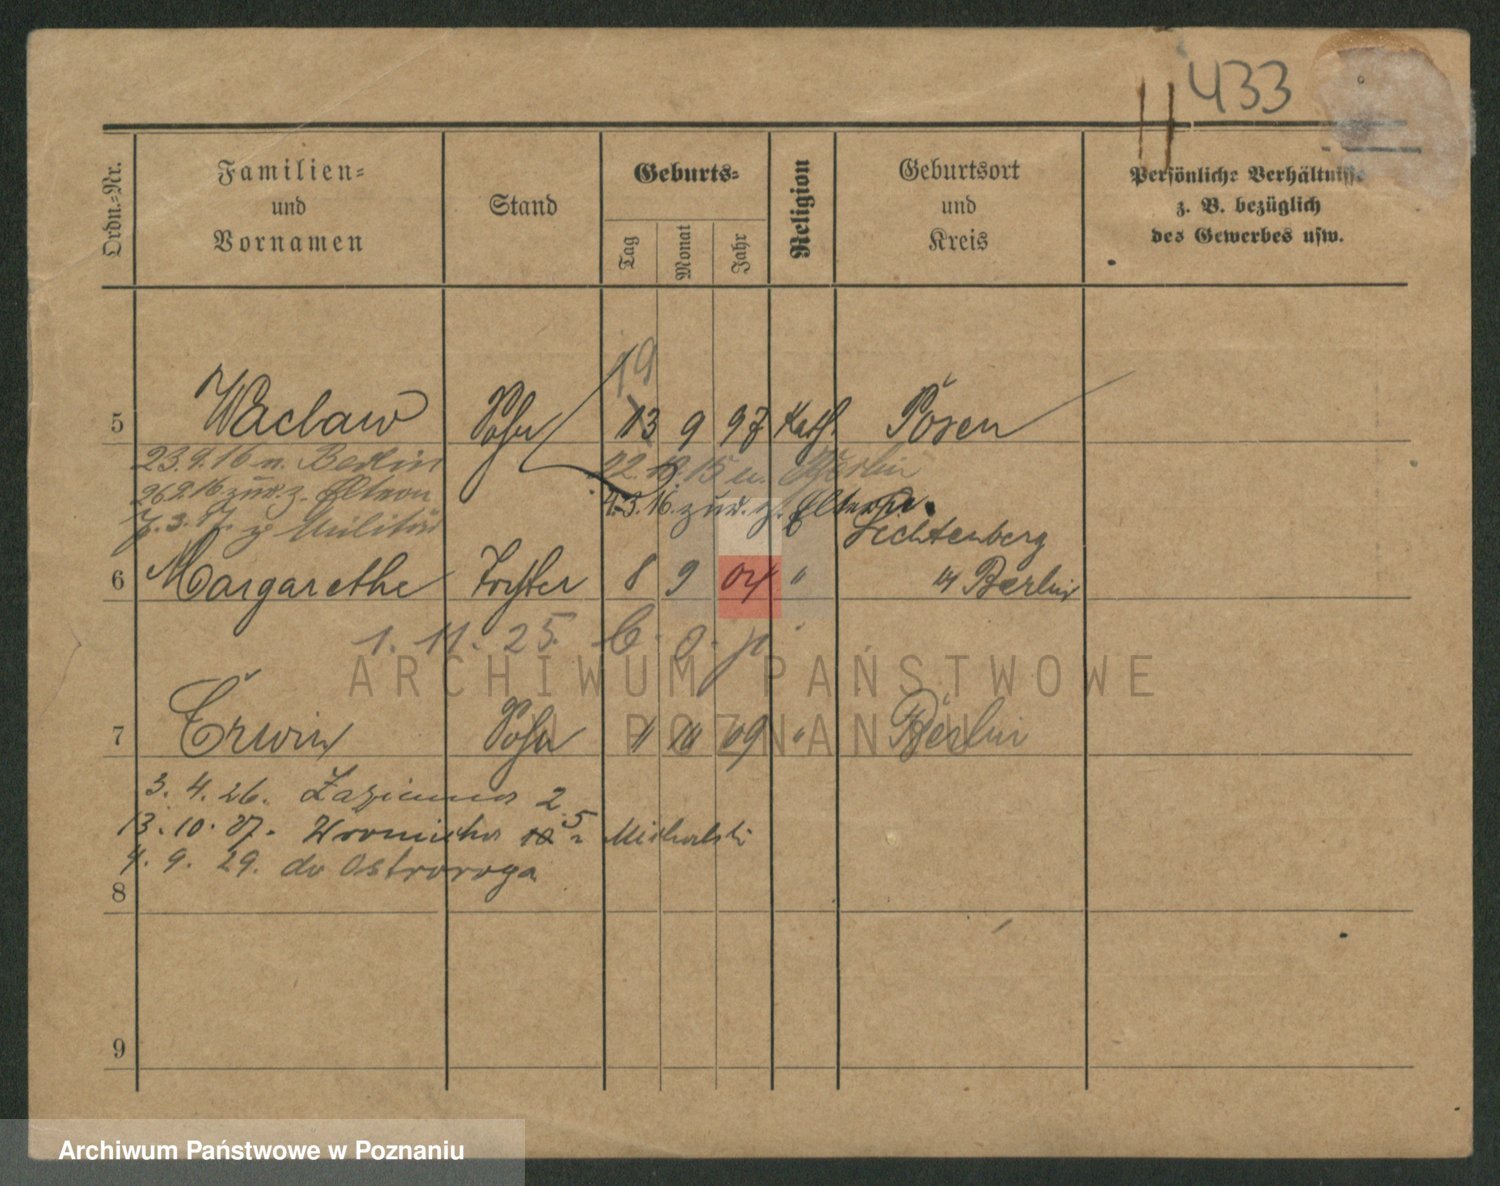 433
Ordn.-Nr. Familien- und Vornamen Stand Geburts- Tag Monat Jahr Religion Geburtsort und Kreis Persönliche Verhältnisse z. B. bezüglich des Gewerbes usw.
19
5 Waclaw Sohn 13 9 97 Kath. Posen
23.9.16 n. Berlin 22. 15 n. Berlin
26.9.16 zur. z. Eltern 4.3.16. zur. z. Eltern.
7.3.17. z. Militär Lichtenberg
6 Margarethe Tochter 8 9 04 " Berlin
1. 11. 25.
ARCHIWUM PAŃSTWOWE
W POZNANIU
7 Erwin Sohn 11 10 09 " Berlin
3. 4. 26. 2
13. 10. 27. Wroniecka 5 Michalski
4. 9. 29. do Ostroroga
8
9
Archiwum Państwowe w Poznaniu